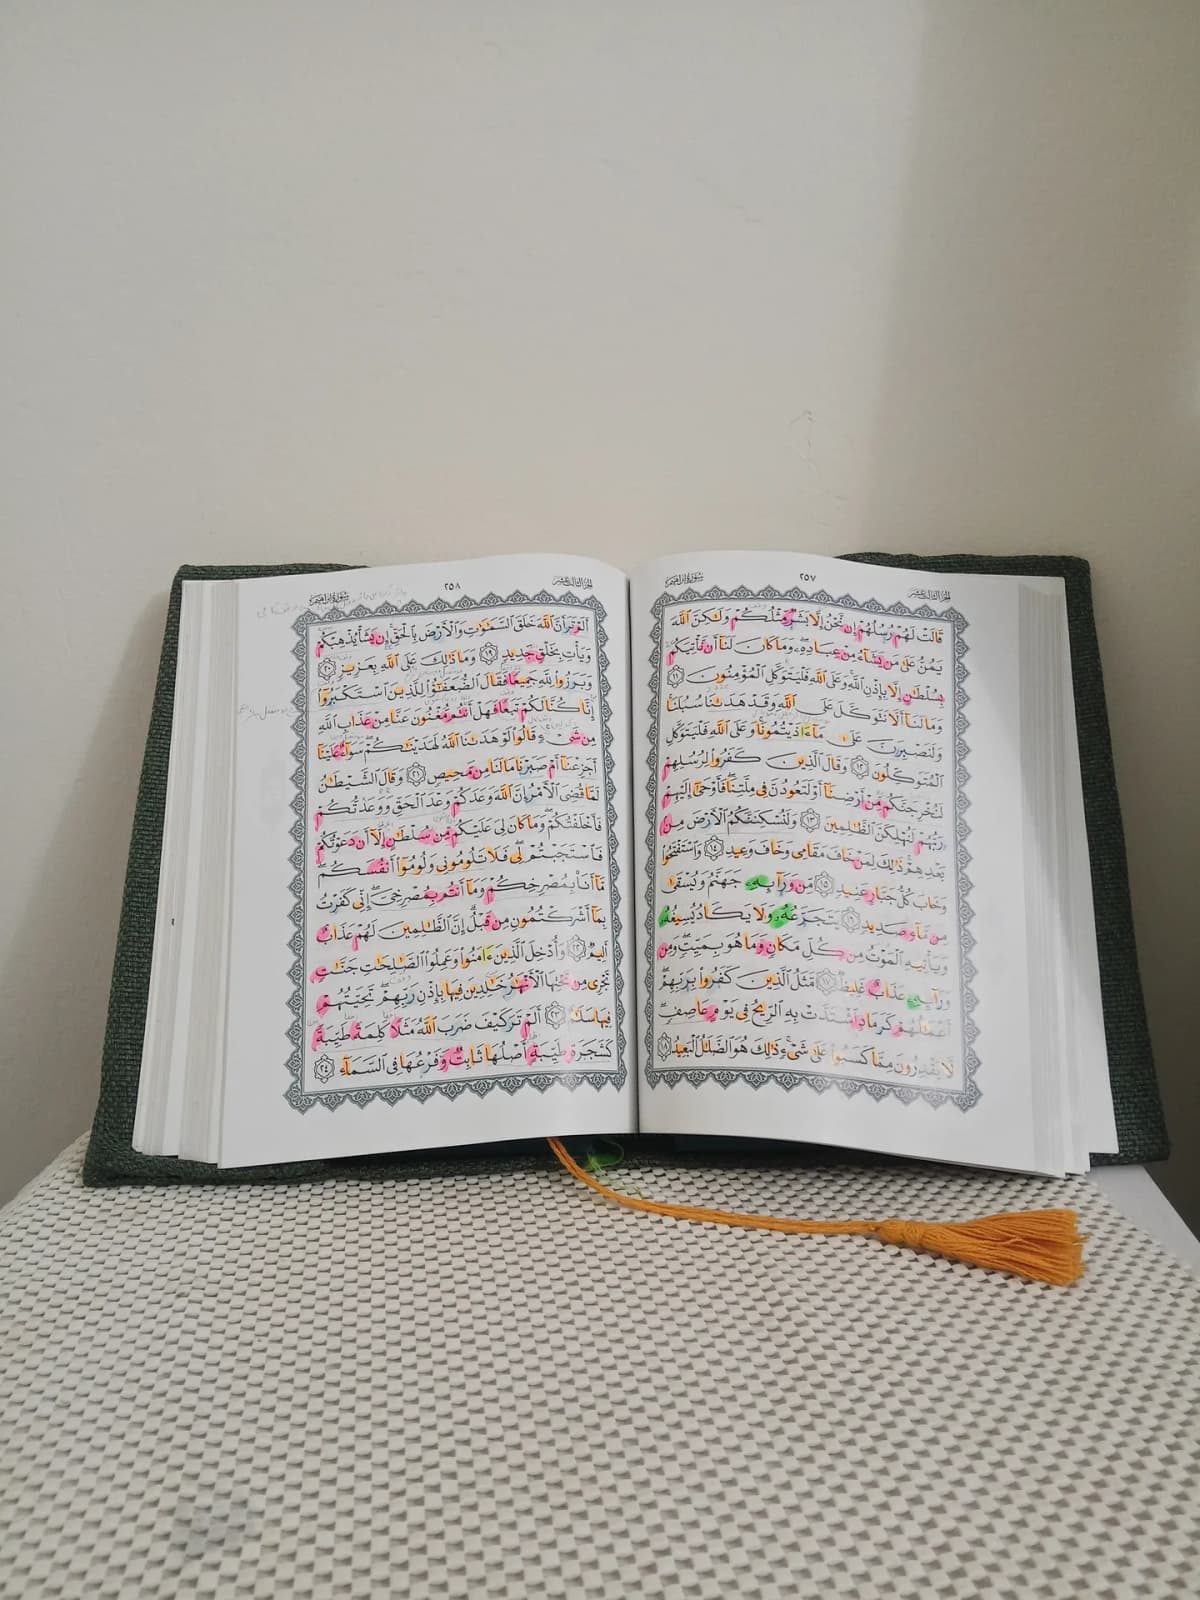 الجزء الثالث عشر ٢٥٧ سورة إبراهيم
قَالَتْ لَهُمْ رُسُلُهُمْ إِن نَّحْنُ إِلَّا بَشَرٌ مِّثْلُكُمْ وَلَٰكِنَّ ٱللَّهَ
يَمُنُّ عَلَىٰ مَن يَشَآءُ مِنْ عِبَادِهِۦ وَمَا كَانَ لَنَآ أَن نَّأْتِيَكُم
بِسُلْطَٰنٍ إِلَّا بِإِذْنِ ٱللَّهِ وَعَلَى ٱللَّهِ فَلْيَتَوَكَّلِ ٱلْمُؤْمِنُونَ ١١
وَمَا لَنَآ أَلَّا نَتَوَكَّلَ عَلَى ٱللَّهِ وَقَدْ هَدَىٰنَا سُبُلَنَا
وَلَنَصْبِرَنَّ عَلَىٰ مَآ ءَاذَيْتُمُونَا وَعَلَى ٱللَّهِ فَلْيَتَوَكَّلِ
ٱلْمُتَوَكِّلُونَ ١٢ وَقَالَ ٱلَّذِينَ كَفَرُوا۟ لِرُسُلِهِمْ
لَنُخْرِجَنَّكُم مِّنْ أَرْضِنَآ أَوْ لَتَعُودُنَّ فِى مِلَّتِنَا فَأَوْحَىٰٓ إِلَيْهِمْ
رَبُّهُمْ لَنُهْلِكَنَّ ٱلظَّٰلِمِينَ ١٣ وَلَنُسْكِنَنَّكُمُ ٱلْأَرْضَ مِنۢ
بَعْدِهِمْ ذَٰلِكَ لِمَنْ خَافَ مَقَامِى وَخَافَ وَعِيدِ ١٤ وَٱسْتَفْتَحُوا۟
وَخَابَ كُلُّ جَبَّارٍ عَنِيدٍ ١٥ مِّن وَرَآئِهِۦ جَهَنَّمُ وَيُسْقَىٰ
مِن مَّآءٍ صَدِيدٍ ١٦ يَتَجَرَّعُهُۥ وَلَا يَكَادُ يُسِيغُهُۥ
وَيَأْتِيهِ ٱلْمَوْتُ مِن كُلِّ مَكَانٍ وَمَا هُوَ بِمَيِّتٍ وَمِن
وَرَآئِهِۦ عَذَابٌ غَلِيظٌ ١٧ مَّثَلُ ٱلَّذِينَ كَفَرُوا۟ بِرَبِّهِمْ
أَعْمَٰلُهُمْ كَرَمَادٍ ٱشْتَدَّتْ بِهِ ٱلرِّيحُ فِى يَوْمٍ عَاصِفٍ
لَّا يَقْدِرُونَ مِمَّا كَسَبُوا۟ عَلَىٰ شَىْءٍ ذَٰلِكَ هُوَ ٱلضَّلَٰلُ ٱلْبَعِيدُ ١٨
الجزء الثالث عشر ٢٥٨ سورة إبراهيم
أَلَمْ تَرَ أَنَّ ٱللَّهَ خَلَقَ ٱلسَّمَٰوَٰتِ وَٱلْأَرْضَ بِٱلْحَقِّ إِن يَشَأْ يُذْهِبْكُمْ
وَيَأْتِ بِخَلْقٍ جَدِيدٍ ١٩ وَمَا ذَٰلِكَ عَلَى ٱللَّهِ بِعَزِيزٍ ٢٠
وَبَرَزُوا۟ لِلَّهِ جَمِيعًا فَقَالَ ٱلضُّعَفَٰٓؤُا۟ لِلَّذِينَ ٱسْتَكْبَرُوٓا۟
إِنَّا كُنَّا لَكُمْ تَبَعًا فَهَلْ أَنتُم مُّغْنُونَ عَنَّا مِنْ عَذَابِ ٱللَّهِ
مِن شَىْءٍ قَالُوا۟ لَوْ هَدَىٰنَا ٱللَّهُ لَهَدَيْنَٰكُمْ سَوَآءٌ عَلَيْنَآ
أَجَزِعْنَآ أَمْ صَبَرْنَا مَا لَنَا مِن مَّحِيصٍ ٢١ وَقَالَ ٱلشَّيْطَٰنُ
لَمَّا قُضِىَ ٱلْأَمْرُ إِنَّ ٱللَّهَ وَعَدَكُمْ وَعْدَ ٱلْحَقِّ وَوَعَدتُّكُمْ
فَأَخْلَفْتُكُمْ وَمَا كَانَ لِىَ عَلَيْكُم مِّن سُلْطَٰنٍ إِلَّآ أَن دَعَوْتُكُمْ
فَٱسْتَجَبْتُمْ لِى فَلَا تَلُومُونِى وَلُومُوٓا۟ أَنفُسَكُم
مَّآ أَنَا۠ بِمُصْرِخِكُمْ وَمَآ أَنتُم بِمُصْرِخِىَّ إِنِّى كَفَرْتُ
بِمَآ أَشْرَكْتُمُونِ مِن قَبْلُ إِنَّ ٱلظَّٰلِمِينَ لَهُمْ عَذَابٌ
أَلِيمٌ ٢٢ وَأُدْخِلَ ٱلَّذِينَ ءَامَنُوا۟ وَعَمِلُوا۟ ٱلصَّٰلِحَٰتِ جَنَّٰتٍ
تَجْرِى مِن تَحْتِهَا ٱلْأَنْهَٰرُ خَٰلِدِينَ فِيهَا بِإِذْنِ رَبِّهِمْ تَحِيَّتُهُمْ
فِيهَا سَلَٰمٌ ٢٣ أَلَمْ تَرَ كَيْفَ ضَرَبَ ٱللَّهُ مَثَلًا كَلِمَةً طَيِّبَةً
كَشَجَرَةٍ طَيِّبَةٍ أَصْلُهَا ثَابِتٌ وَفَرْعُهَا فِى ٱلسَّمَآءِ ٢٤